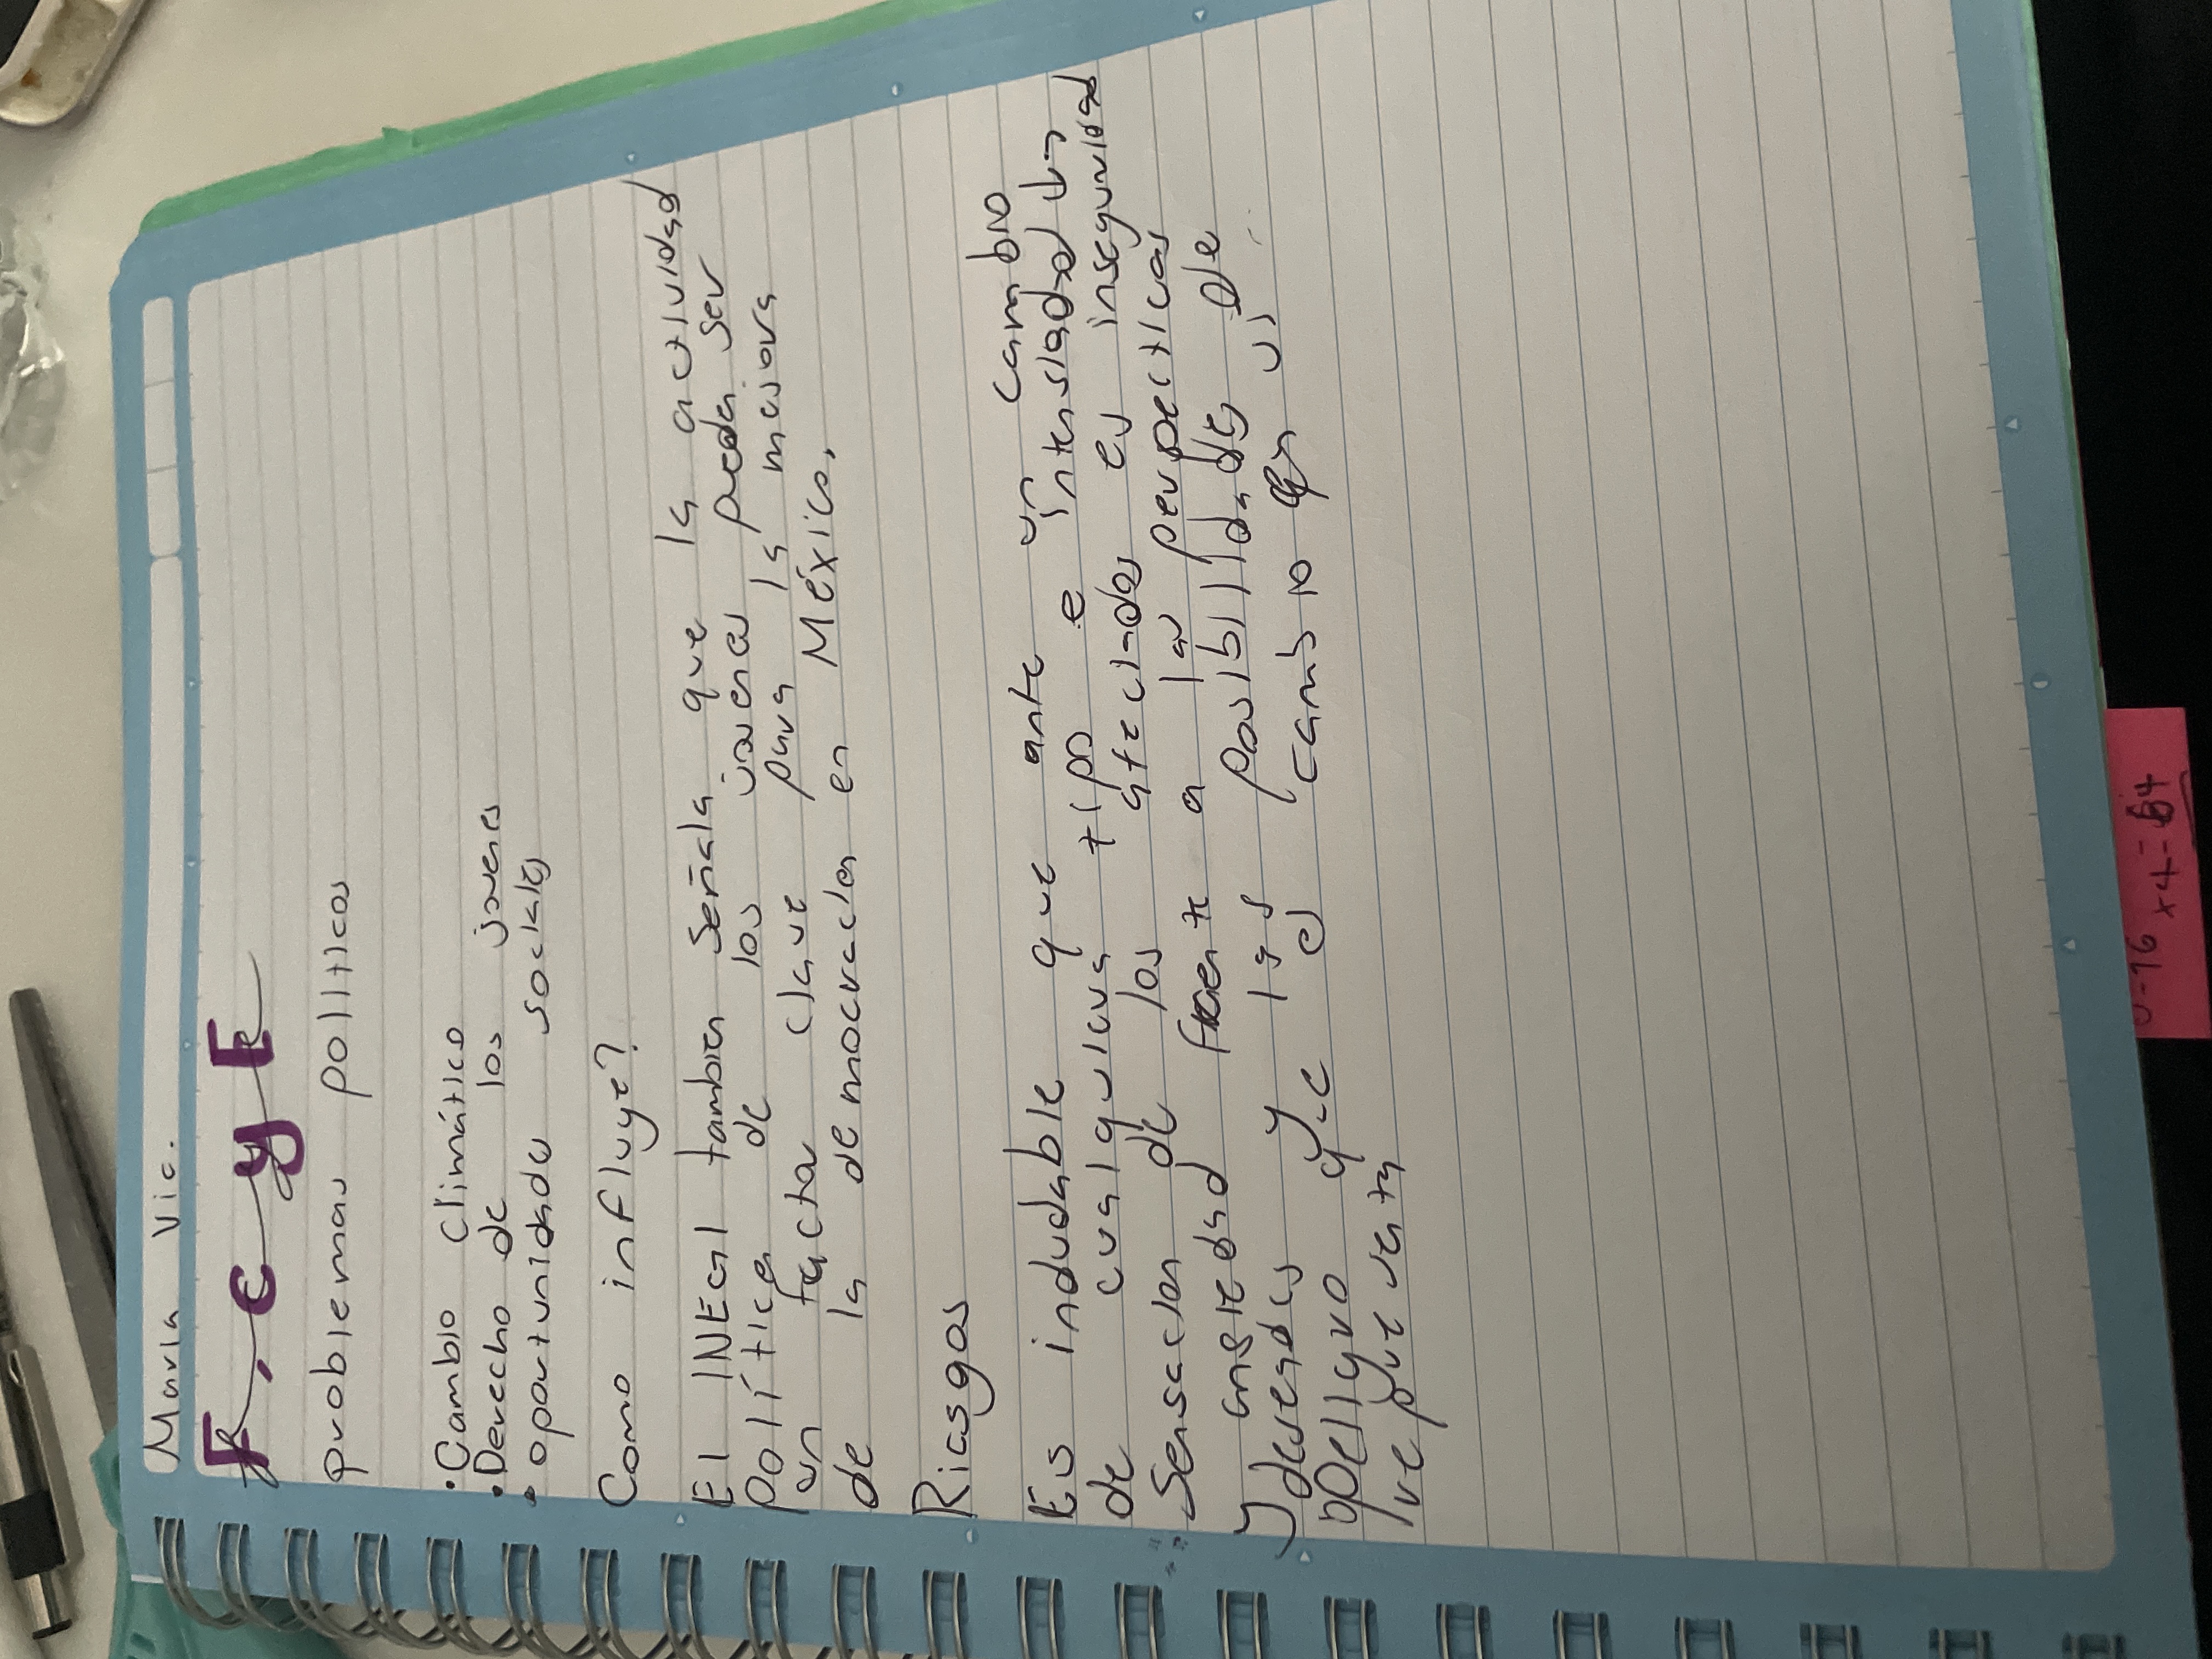 María Vic.
F. C y E
problemas políticos
• Cambio climático
• Derecho de los jovenes
• oportunidades sociales
Como influye?
El INEGI tambien señala que la actividad
política de los jovenes pueda ser
un factor clave para la mejora
de la democracia en México.
Riesgos
Es indudable que ante un cambio
de cualquiera tipo e intensidad la
sensacion de los afectados es inseguridad
y ansiedad frente a las perspecticas
y deseades y las posibilidades de
peligro que el cambio en si
represents
0-16 x4=64